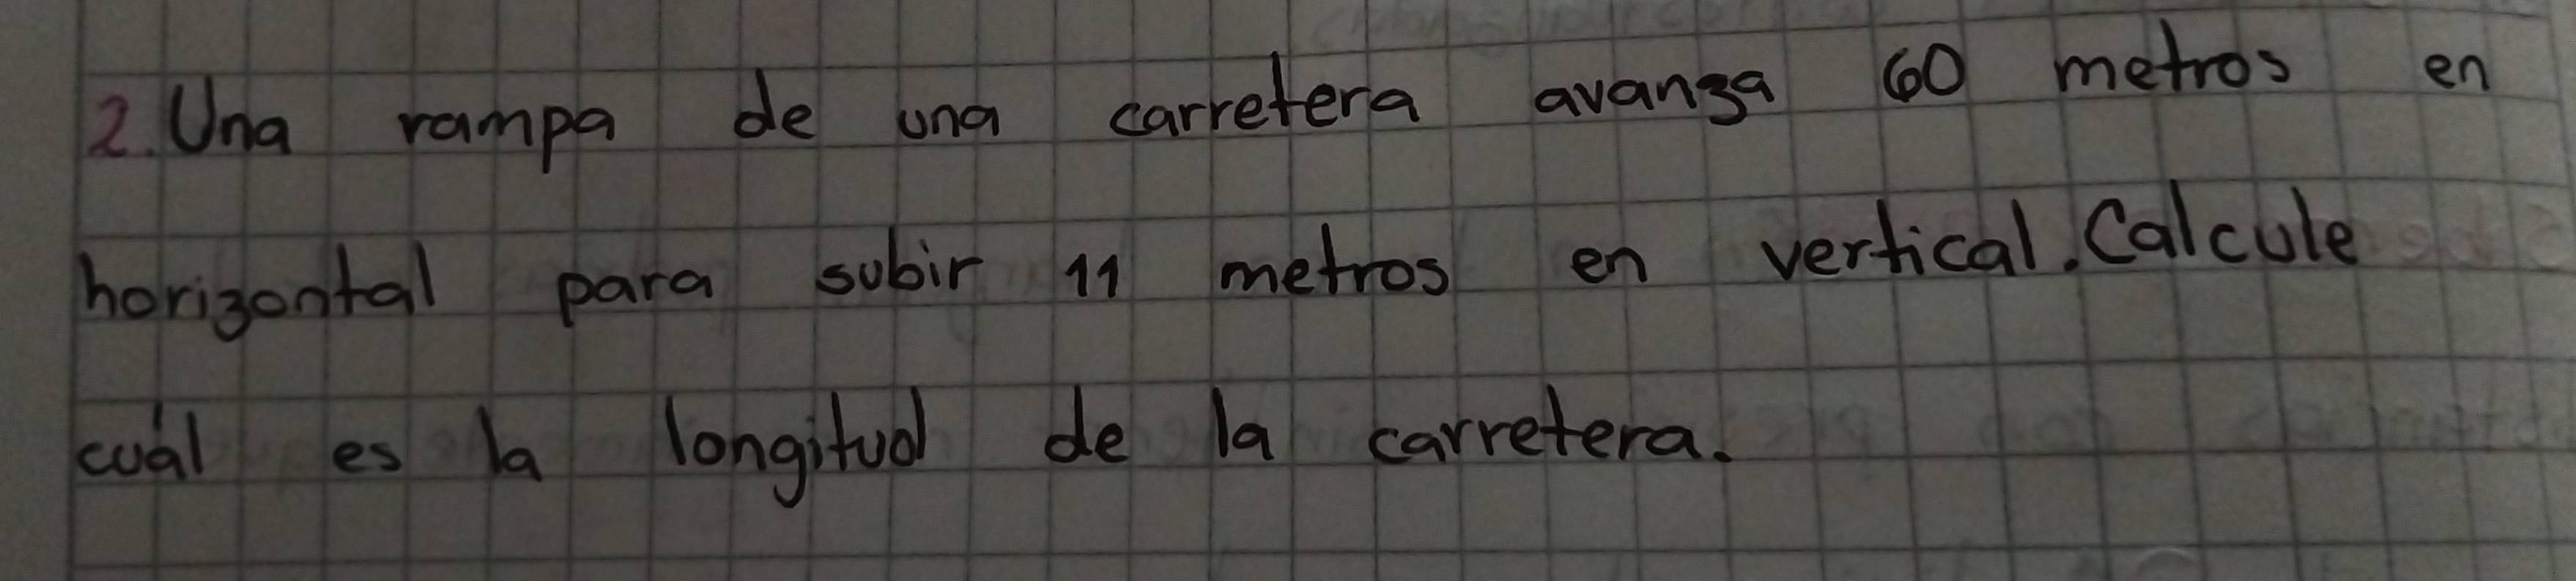 2. Una rampa de una carretera avanza 60 metros en
horizontal para subir 11 metros en vertical. Calcule
cuál es la longitud de la carretera.